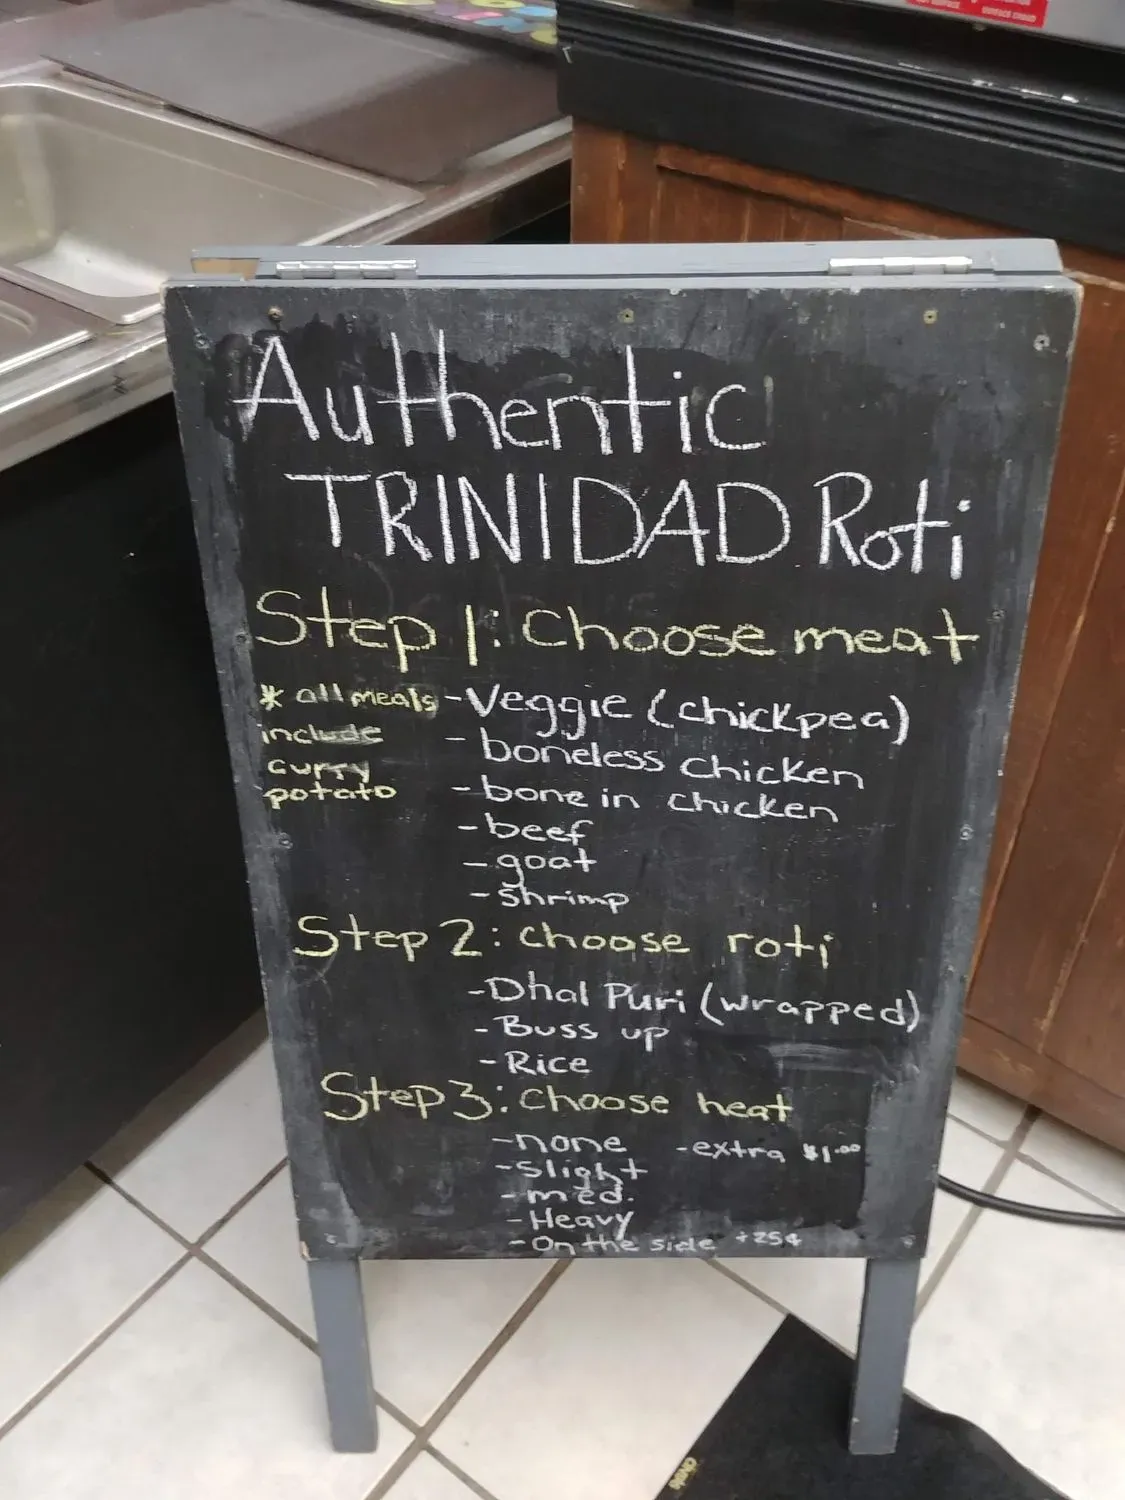 Authentic
TRINIDAD Roti
Step 1: Choose meat
* all meals
include
curry
potato
- Veggie (chickpea)
- boneless chicken
- bone in chicken
- beef
- goat
- shrimp
Step 2: choose roti
- Dhal Puri (wrapped)
- Buss up
- Rice
Step 3: choose heat
- none
- slight
- med.
- Heavy
- On the side +25¢
- extra $1.00
SURFACE CHAUD